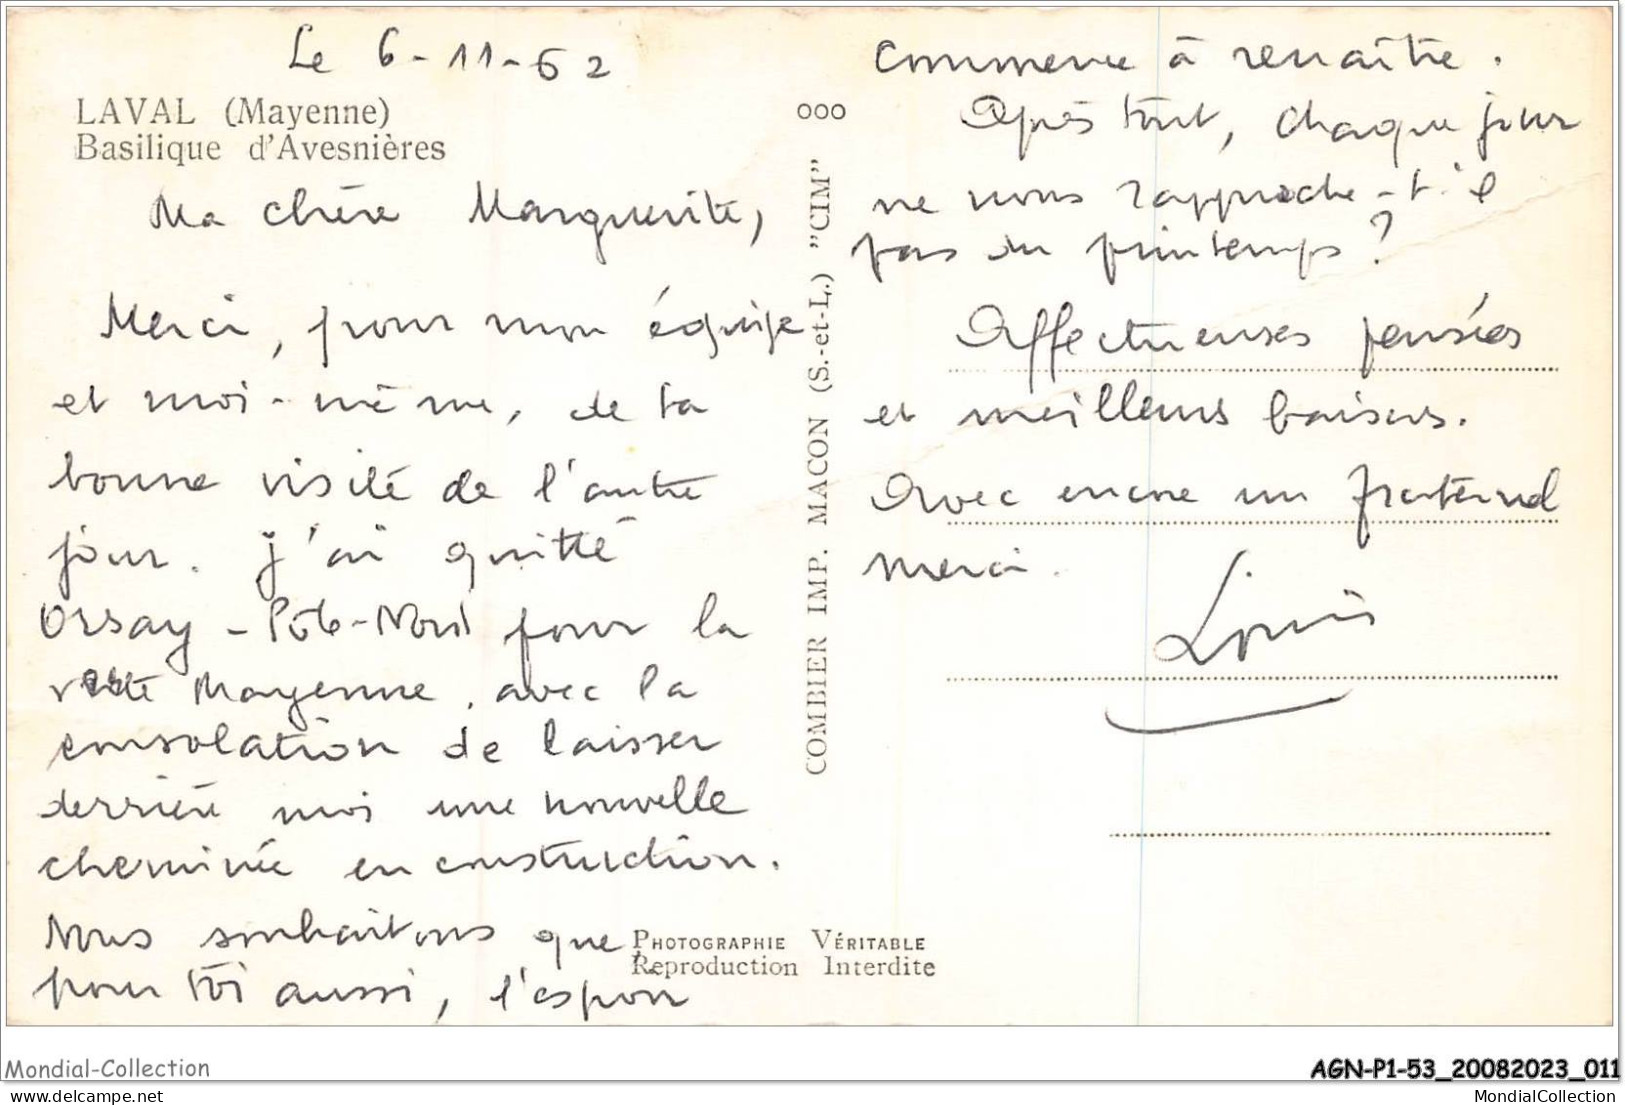 Le 6-11-62
LAVAL (Mayenne)
Basilique d'Avesnières
Ma chère Marguerite,
Merci, pour mon équipe
et moi-même, de ta
bonne visite de l'autre
jour. J'ai quitté
Orsay-Pôle-Nord pour la
verte Mayenne, avec la
consolation de laisser
derrière moi une nouvelle
cheminée en construction.
Nous souhaitons que,
pour toi aussi, l'espoir
PHOTOGRAPHIE VÉRITABLE
Reproduction Interdite
COMBIER IMP. MACON (S.-et-L.) "CIM"
000
commence à renaître.
Après tout, chaque jour
ne nous rapproche-t-il
pas du printemps?
Affectueuses pensées
et meilleurs baisers.
Avec encore un fraternel
merci.
Louis
Mondial-Collection
AGN-P1-53_20082023_011
delcampe.net
MondialCollection